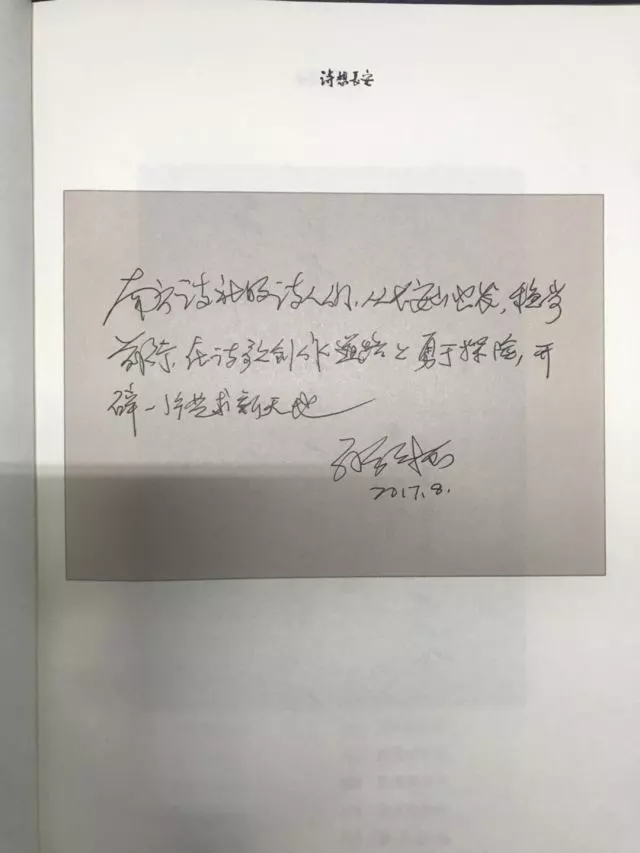 诗想長安
南方诗社的诗人们，从长安山出发，稳步
前行，在诗歌创作道路上勇于探险，开
辟一片艺术新天地
2017.8.